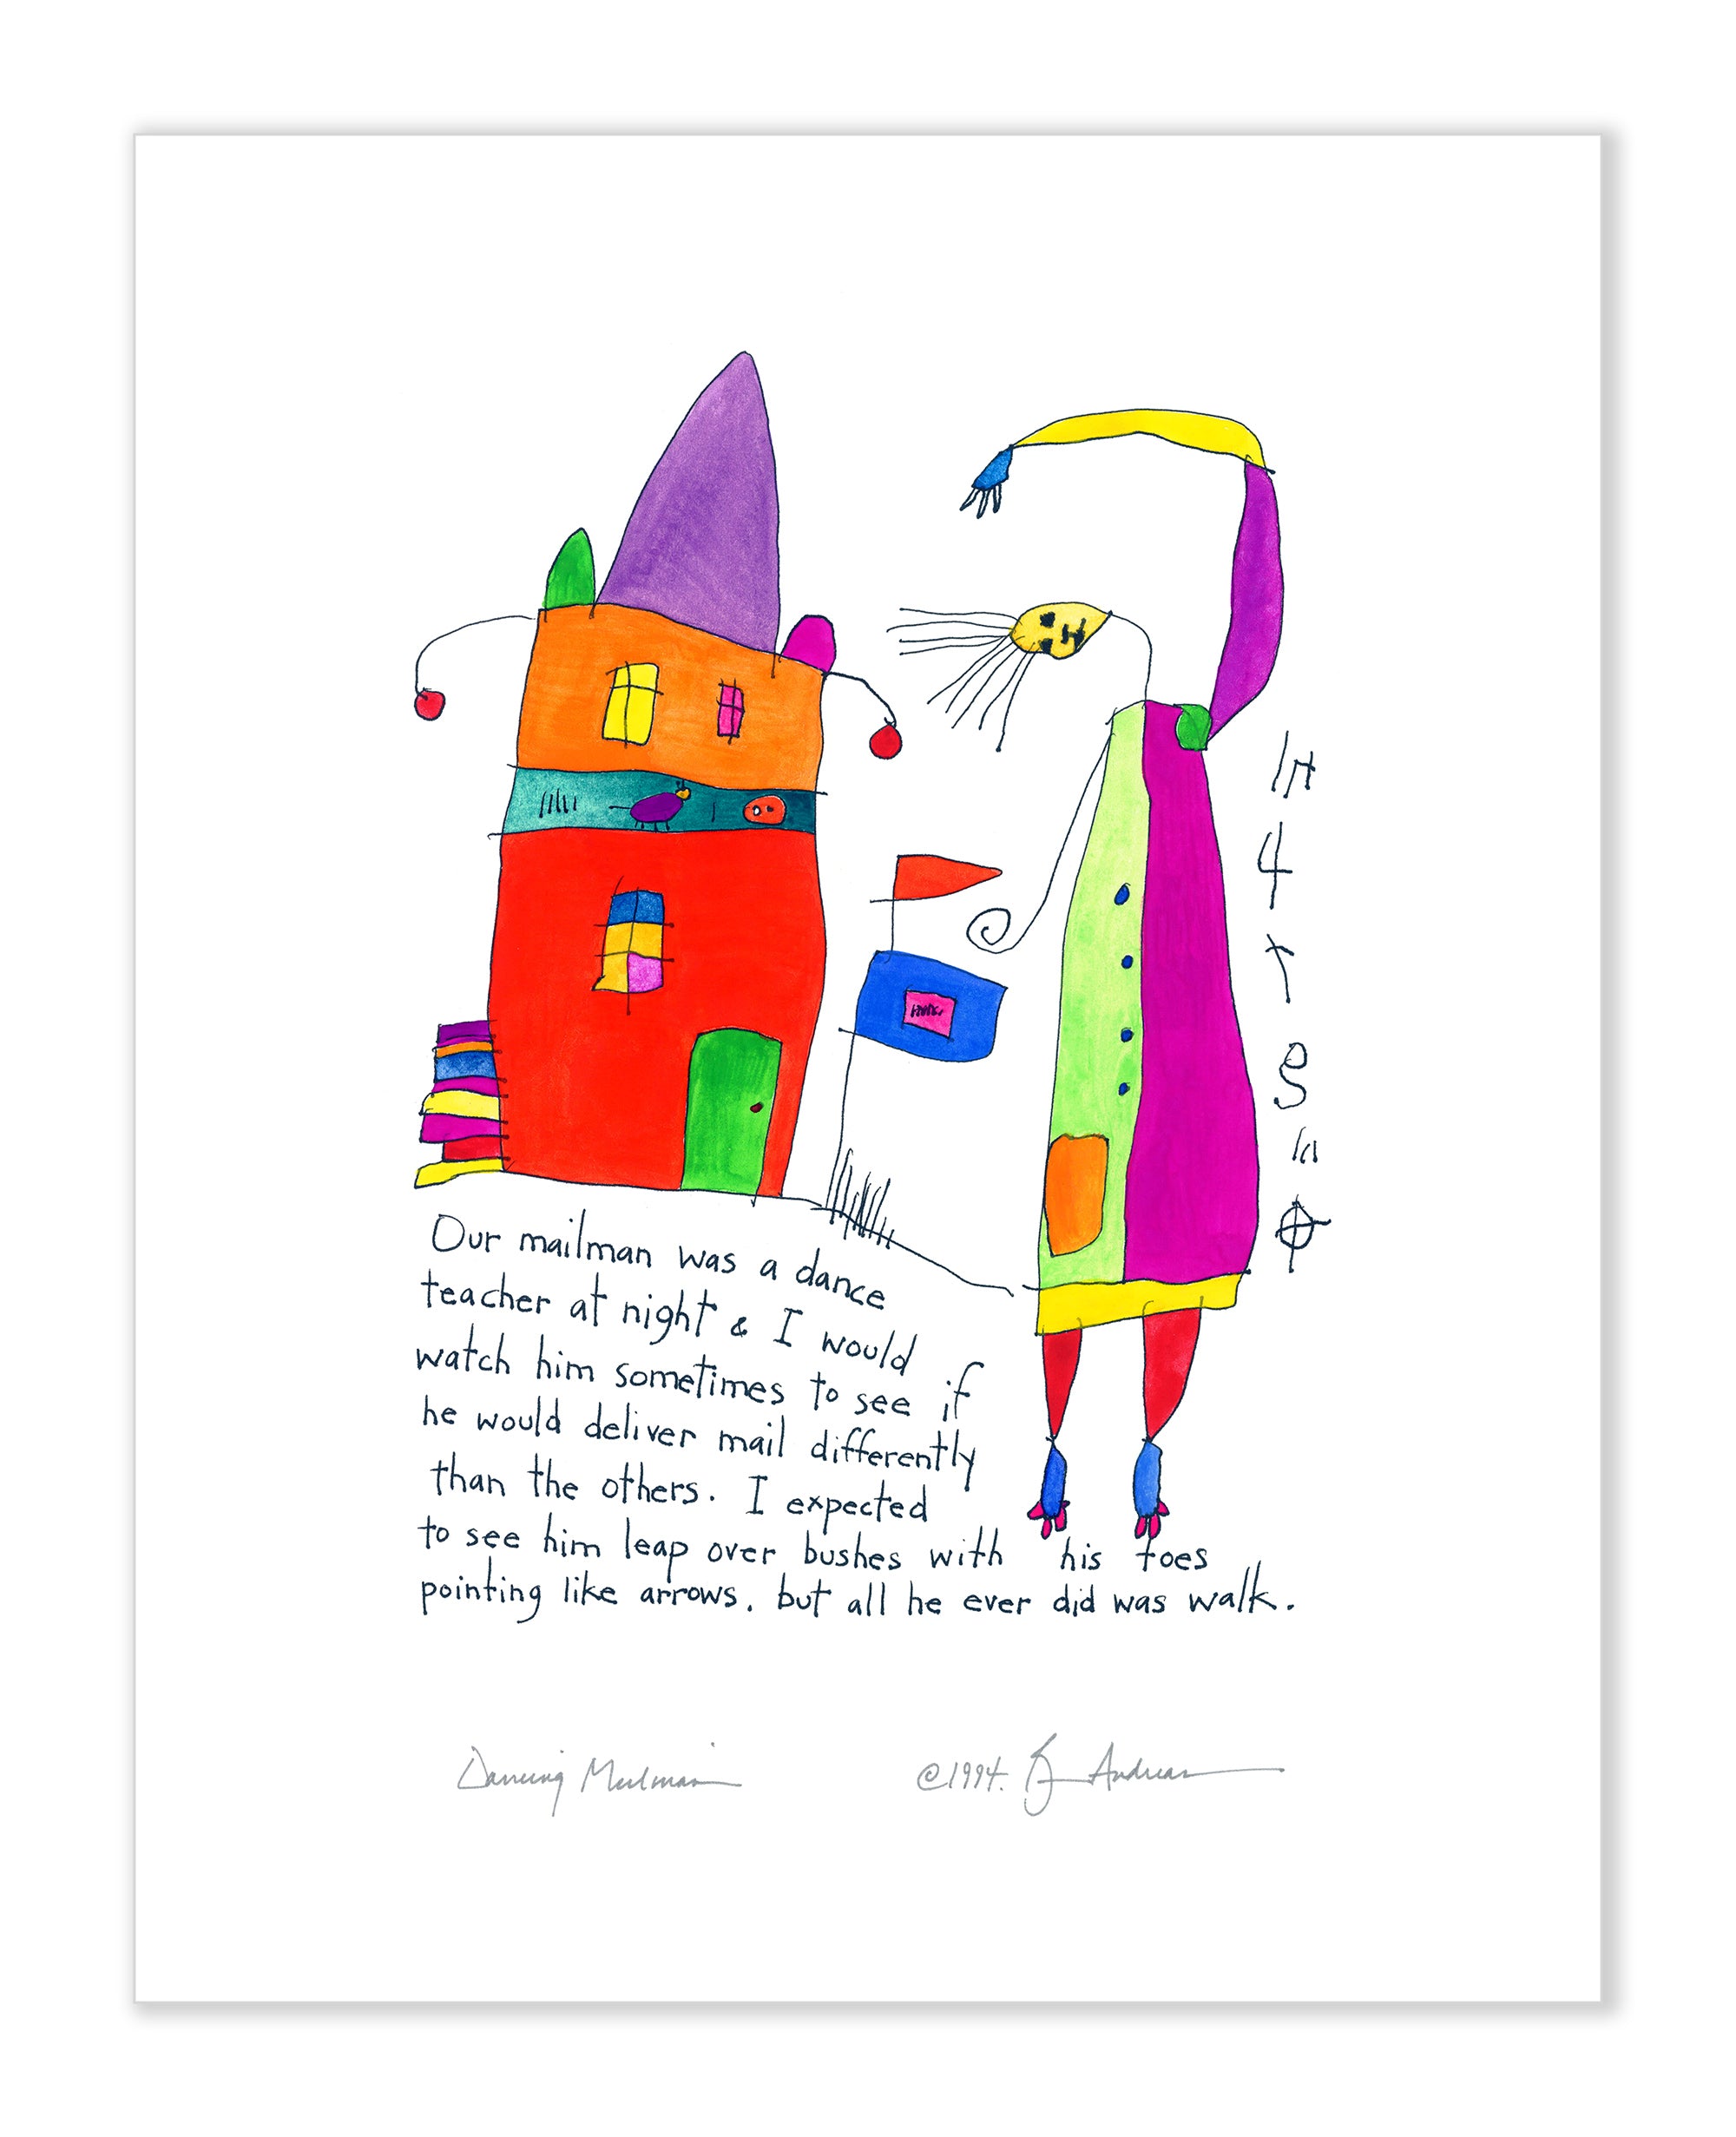 Our mailman was a dance
teacher at night & I would
watch him sometimes to see if
he would deliver mail differently
than the others. I expected
to see him leap over bushes with his toes
pointing like arrows. but all he ever did was walk.
Dancing Mailman
©1994. Andreas